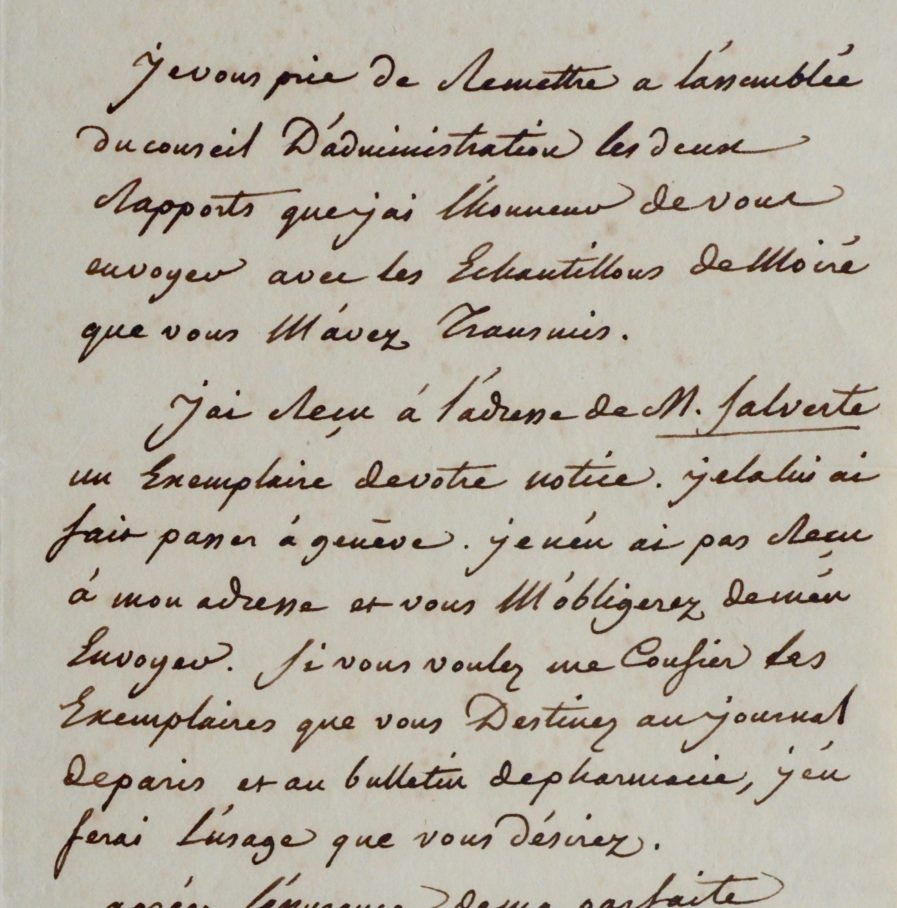 je vous prie de Remettre a l'assemblée
du conseil D'administration les deux
Rapports que j'ai l'honneur de vous
envoyer avec les Echantillons de Moiré
que vous M'avez Transmis.
j'ai Reçu à l'adresse de M. Salverte
un Exemplaire de votre notice. je la lui ai
fait passer à genève. je n'én ai pas Reçu
à mon adresse et vous M'obligerez de m'én
Envoyer. Si vous voulez me Confier les
Exemplaires que vous Destinez au journal
de paris et au bulletin de pharmacie, j'én
ferai l'usage que vous désirez.
agréez l'assurance de ma parfaite